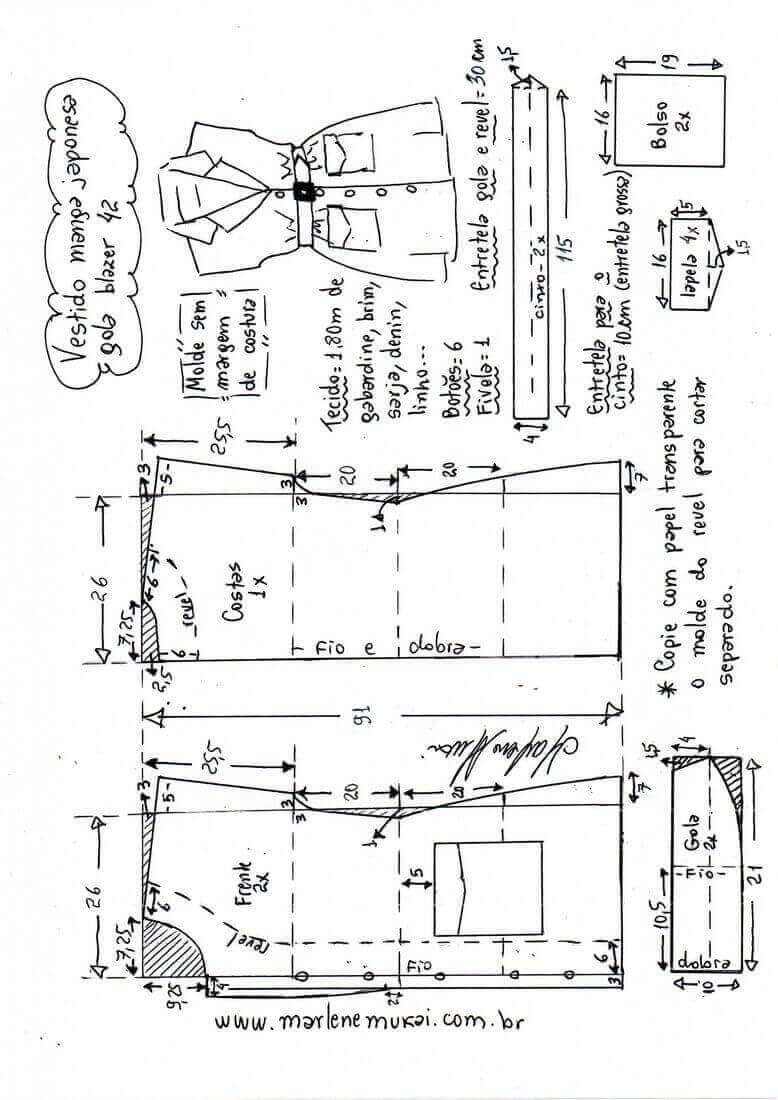 Vestido manga japonesa
gola blazer 42
Molde sem
margem
de costura
Tecido=1,80m de
gabardine, brim,
sarja, denin,
linho...
Botões=6
Fivela=1
Entretela gola e revel=30cm
1,5
cinto-2x
115
4
Entretela para o
cinto=10cm (entretela grossa)
16
19
Bolso
2x
16
5
lapela 4x
1,5
* Copie com papel transparente
o molde do revel para cortar
separado.
26
25,5
3
-5-
7,25
6
1
revel
6
2,5
Costas
1x
3
3
20
20
1
Fio e dobra
7
91
26
25,5
3
-5-
7,25
6
9,25
4
Frente
2x
revel
3
3
20
20
1
5
Fio
2
6
3
7
1,5
4
Gola
2x
-Fio-
10,5
21
dobra
10
www.marlenemukai.com.br